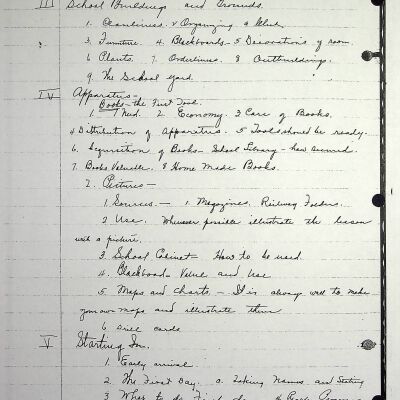 III School Buildings and Grounds.
1. Cleanliness & Organizing a
3. Furniture. 4. Blackboards. 5 Decorations of room.
6 Plants. 7. Orderliness. 8 Outbuildings.
9. The School yard.
IV Apparatus -
Books - the First Tool.
1. Need. 2. Economy. 3 Care of Books.
4 Distribution of Apparatus. 5 Tools should be ready.
6. Acquisition of Books - School Library - how secured.
7. Books Valuable. 8 Home Made Books.
2. Pictures -
1. Sources. - 1. Magazines, Railway Folders.
2 Use. Whenever possible illustrate the lesson
with a picture.
3. School Cabinet - How to be used.
4. Blackboard - Value and Use
5. Maps and Charts - It is always well to make
your own maps and illustrate them
6 cards
V Starting In.
1. Early arrival
2. The First Day. a. Taking Names and Seating
3. What to